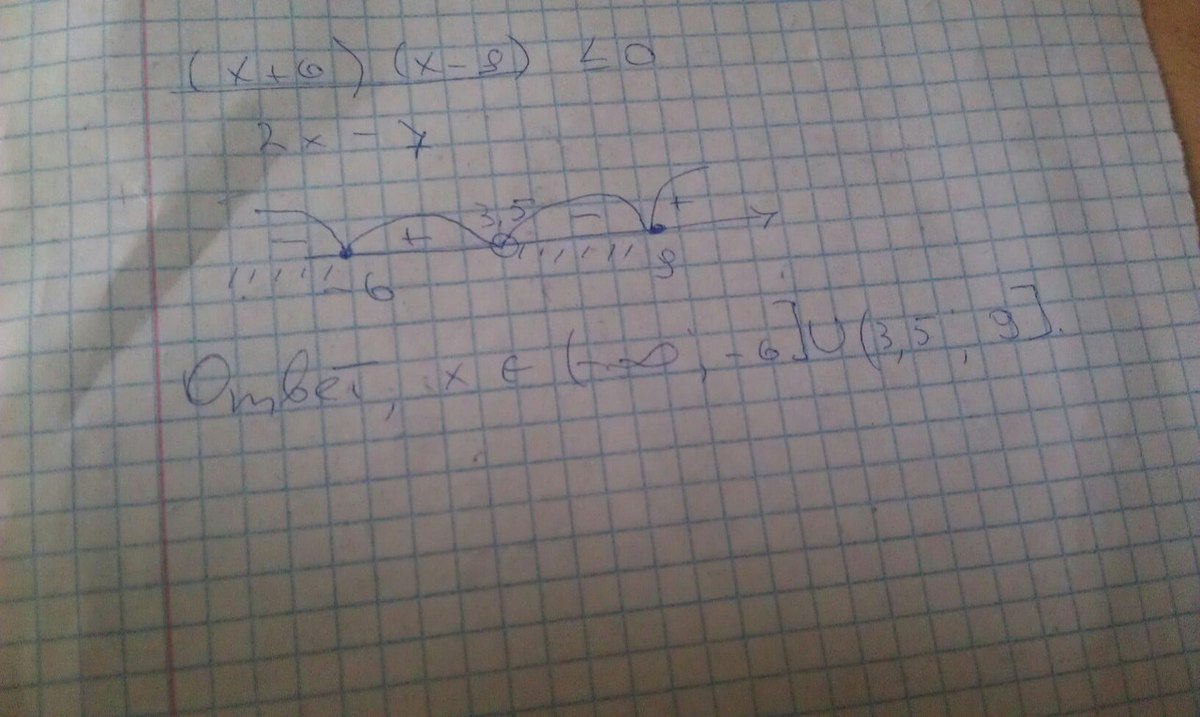 (x+6) (x-9) ≤ 0
2x - 7
- + 3,5 - +
-6 9
Ответ, x ∈ (-∞; -6]∪(3,5; 9].